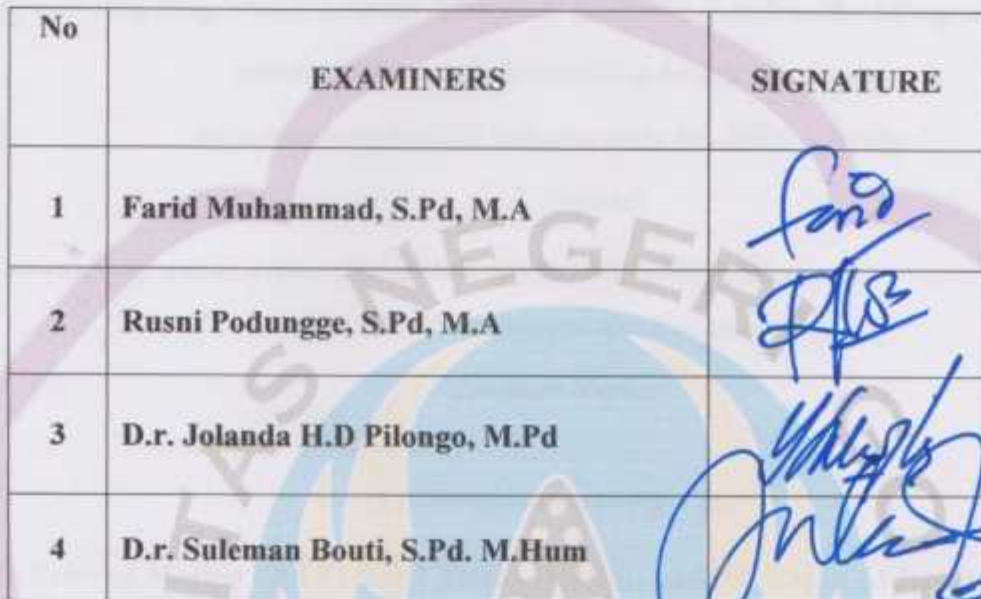 No EXAMINERS SIGNATURE
1 Farid Muhammad, S.Pd, M.A Farid
2 Rusni Podungge, S.Pd, M.A
3 D.r. Jolanda H.D Pilongo, M.Pd
4 D.r. Suleman Bouti, S.Pd. M.Hum
ITAS NEGERI GO